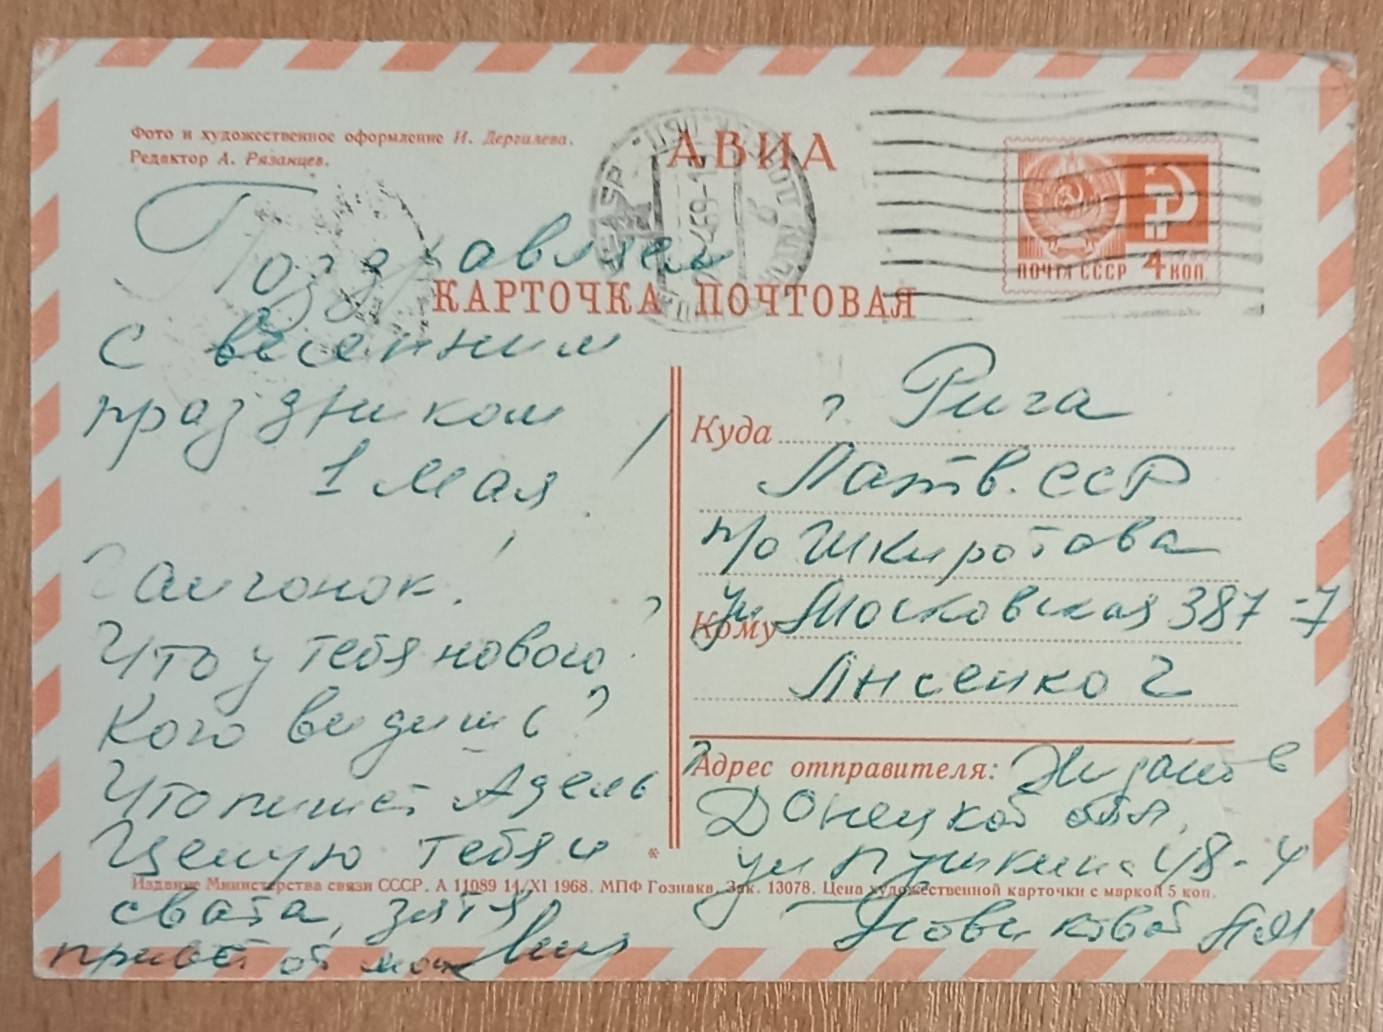 Фото и художественное оформление И. Дергилева.
Редактор А. Рязанцев.
АВИА
КАРТОЧКА ПОЧТОВАЯ
ПОЧТА СССР 4 КОП
Поздравляем
с весенним
праздником
1 Мая!
Галчонок!
Что у тебя нового?
Кого видишь?
Что пишет Адель?
Целую тебя и
свата, зятя,
привет от
Куда г. Рига
Латв. ССР
п/о Шкиротава
Кому ул Московская 387-7
Лисенко Г
Адрес отправителя: Жданов
Донецкой обл,
ул Пушкина 48-4
Новиковой АМ
Издание Министерства связи СССР. А 11089 14/XI 1968. МПФ Гознака. Зак. 13078. Цена художественной карточки с маркой 5 коп.